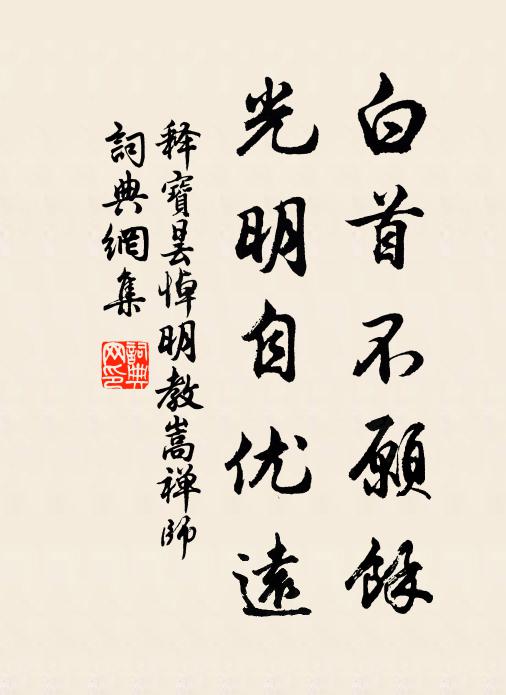 白首不願餘
光明自优遠
释寶昙悼明教嵩禅师
詞典網集
詞典网印